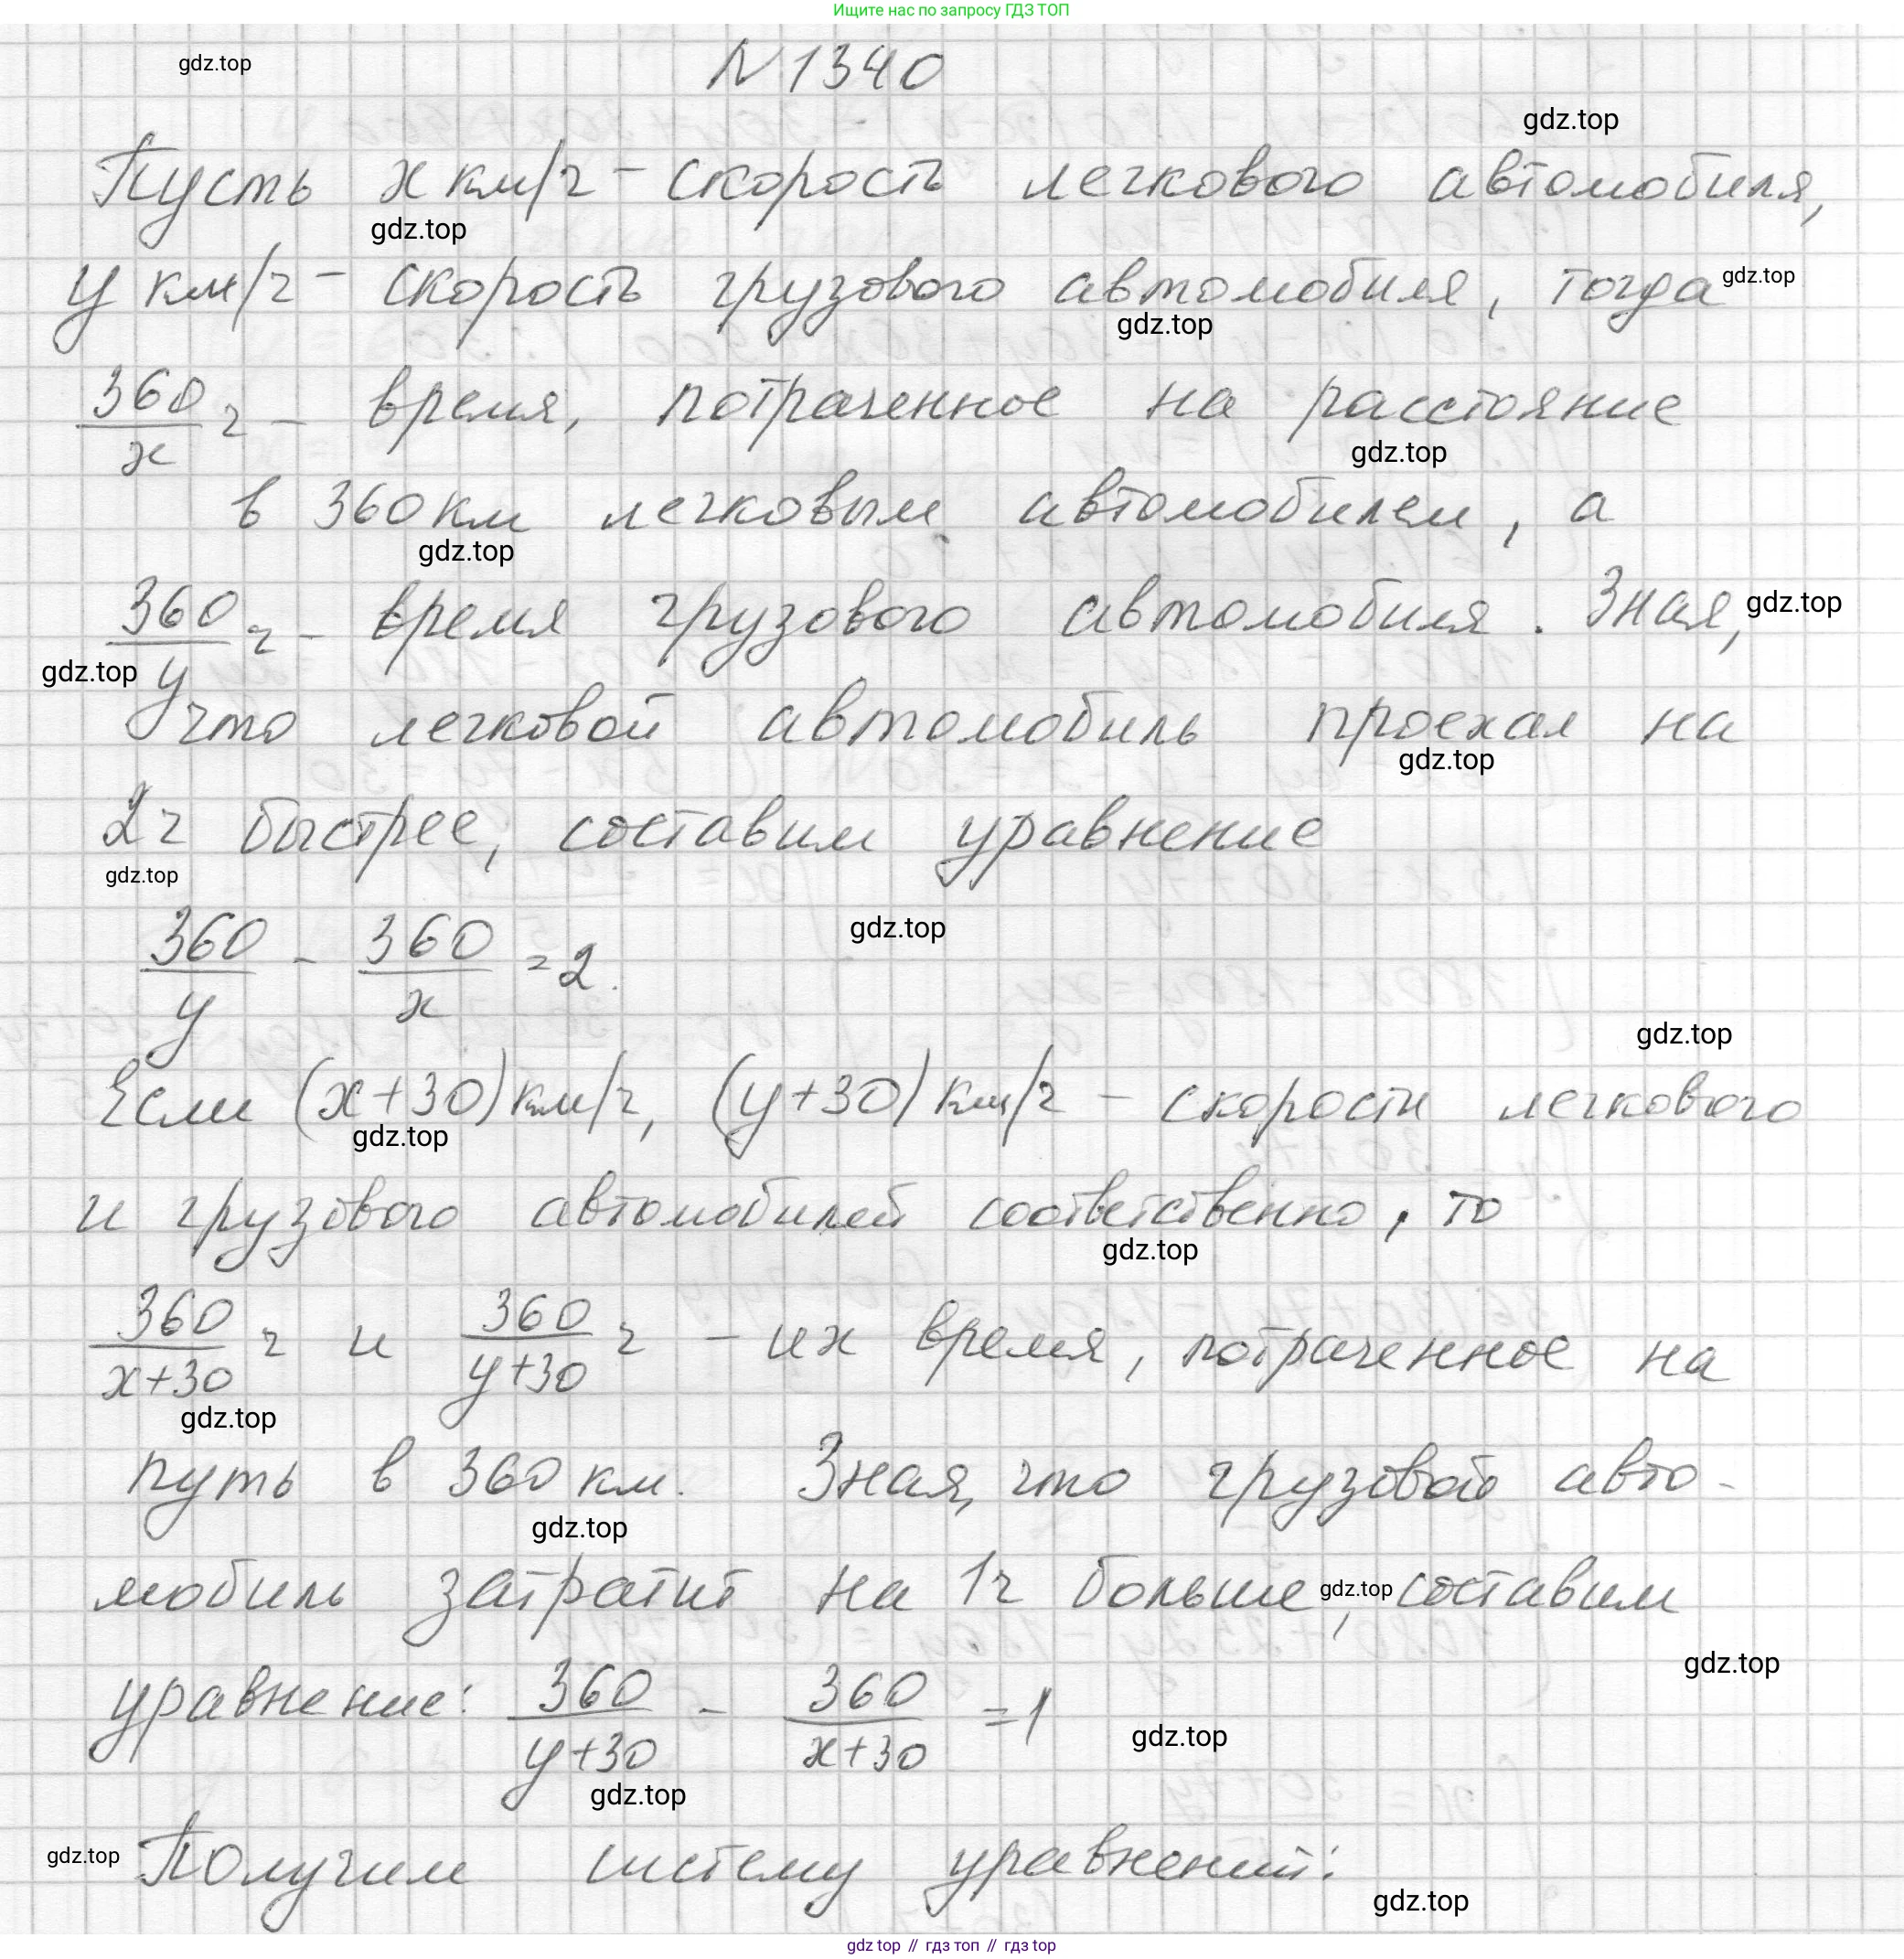 Ищите нас по запросу ГДЗ ТОП
gdz.top
N 1340
gdz.top
Пусть x км/ч – скорость легкового автомобиля,
gdz.top
y км/ч – скорость грузового автомобиля, тогда
gdz.top
gdz.top
360/x ч – время, потраченное на расстояние
gdz.top
в 360 км легковым автомобилем, а
gdz.top
360/y ч – время грузового автомобиля. Зная,
gdz.top
gdz.top
что легковой автомобиль проехал на
gdz.top
2 ч быстрее, составим уравнение
gdz.top
gdz.top
360/y - 360/x = 2.
gdz.top
Если (x+30) км/ч, (y+30) км/ч – скорости легкового
gdz.top
и грузового автомобилей соответственно, то
gdz.top
360/(x+30) ч и 360/(y+30) ч – их время, потраченное на
gdz.top
путь в 360 км. Зная, что грузовой авто-
gdz.top
мобиль затратит на 1ч больше, составим
gdz.top
gdz.top
уравнение: 360/(y+30) - 360/(x+30) = 1
gdz.top
gdz.top
gdz.top
Получим систему уравнений:
gdz.top
gdz top // гдз топ // гдз top